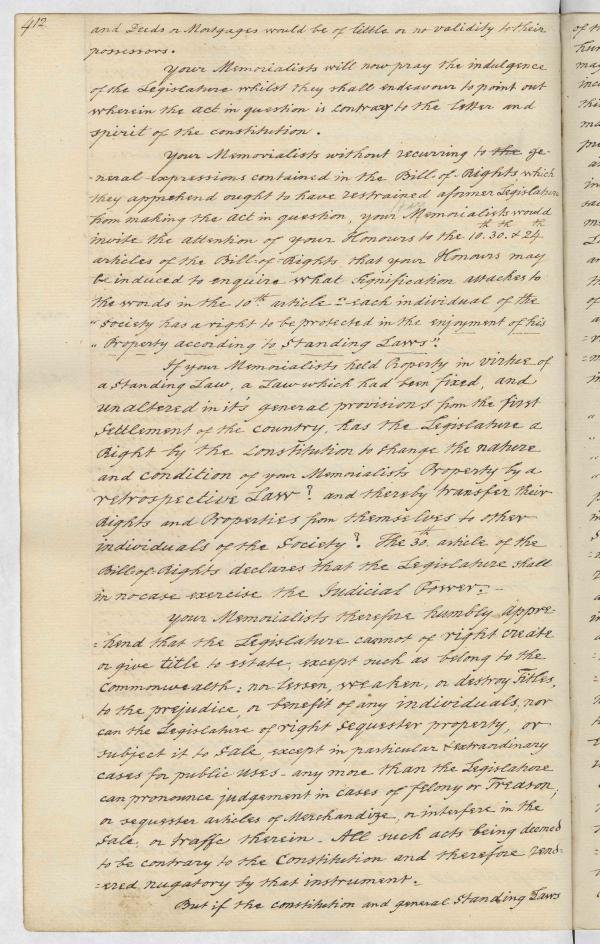 412
and Deeds or Mortgages would be of little or no validity to their
possessors.
Your Memorialists will now pray the indulgence
of the Legislature whilst they shall endeavour to point out
wherein the act in question is contrary to the letter and
spirit of the constitution.
Your Memorialists without recurring to the ge-
-neral expressions contained in the Bill-of-Rights which
they apprehend ought to have restrained a former Legislature
from making the act in question, your Memorialists would
invite the attention of your Honours to the 10th. 30th. & 24th
articles of the Bill-of-Rights that your Honours may
be induced to enquire what Signification attaches to
the words in the 10th article "each individual of the
"Society has a right to be protected in the enjoyment of his
"Property according to Standing Laws".
If your Memorialists held Property in virtue of
a Standing Law, a Law which had been fixed, and
unaltered in it's general provisions from the first
Settlement of the country, has the Legislature a
Right by the Constitution to change the nature
and condition of your Memorialists Property by a
retrospective Law? and thereby transfer their
Rights and Properties from themselves to other
individuals of the Society? The 30th. article of the
Bill-of-Rights declares that the Legislature shall
in no case exercise the Judicial Power.-
Your Memorialists therefore humbly appre-
=hend that the Legislature cannot of right create
or give title to estate, except such as belong to the
Commonwealth; nor lessen, weaken, or destroy Titles,
to the prejudice or benefit of any individuals, nor
can the Legislature of right sequester property, or
subject it to Sale, except in particular & extraordinary
cases for public uses - any more than the Legislature
can pronounce judgement in cases of felony or Treason;
or sequester articles of Merchandize, or interfere in the
Sale, or traffic therein - All such acts being deemed
to be contrary to the Constitution and therefore rend=
=ered nugatory by that instrument.
But if the constitution and general Standing Laws